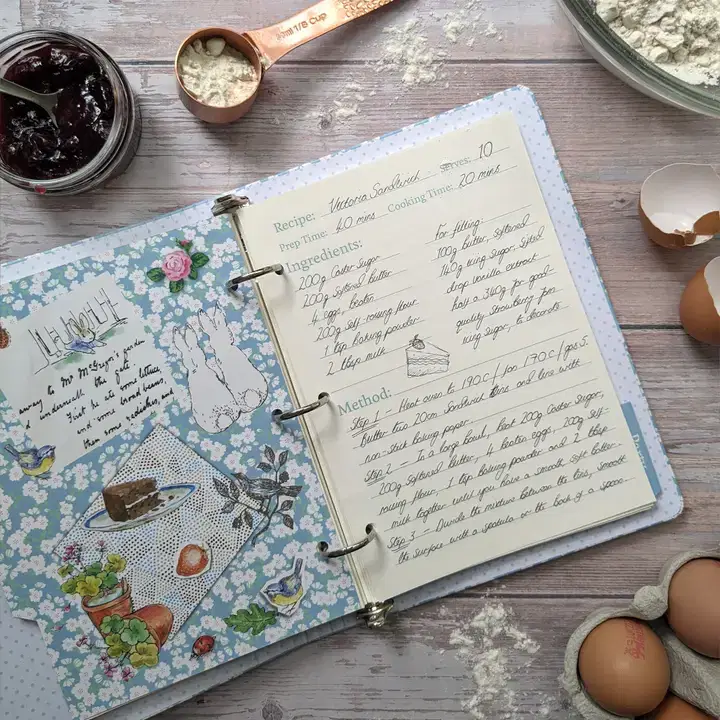 90ml 1/8 Cup
away to Mr McGregor's garden
underneath the gate.
First he ate some lettuces,
and some broad beans,
then some radishes, and
Recipe: Victoria Sandwich Serves: 10
Prep Time: 40 mins Cooking Time: 20 mins
Ingredients:
200g Caster Sugar
200g Softened butter
4 eggs, beaten
200g self-raising flour
1 tsp baking powder
2 tbsp milk
For filling:
100g butter, softened
140g icing sugar, sifted
drop vanilla extract
half a 340g jar good-
quality strawberry jam
icing sugar, to decorate
Method:
Step 1 - Heat oven to 190C / fan 170C / gas 5.
butter two 20cm sandwich tins and line with
non-stick baking paper.
Step 2 - In a large bowl, beat 200g Caster Sugar,
200g Softened butter, 4 beaten eggs, 200g self-
raising flour, 1 tsp baking powder and 2 tbsp
milk together until you have a smooth soft batter.
Step 3 - Divide the mixture between the tins, smooth
the surface with a spatula or the back of a spoon.